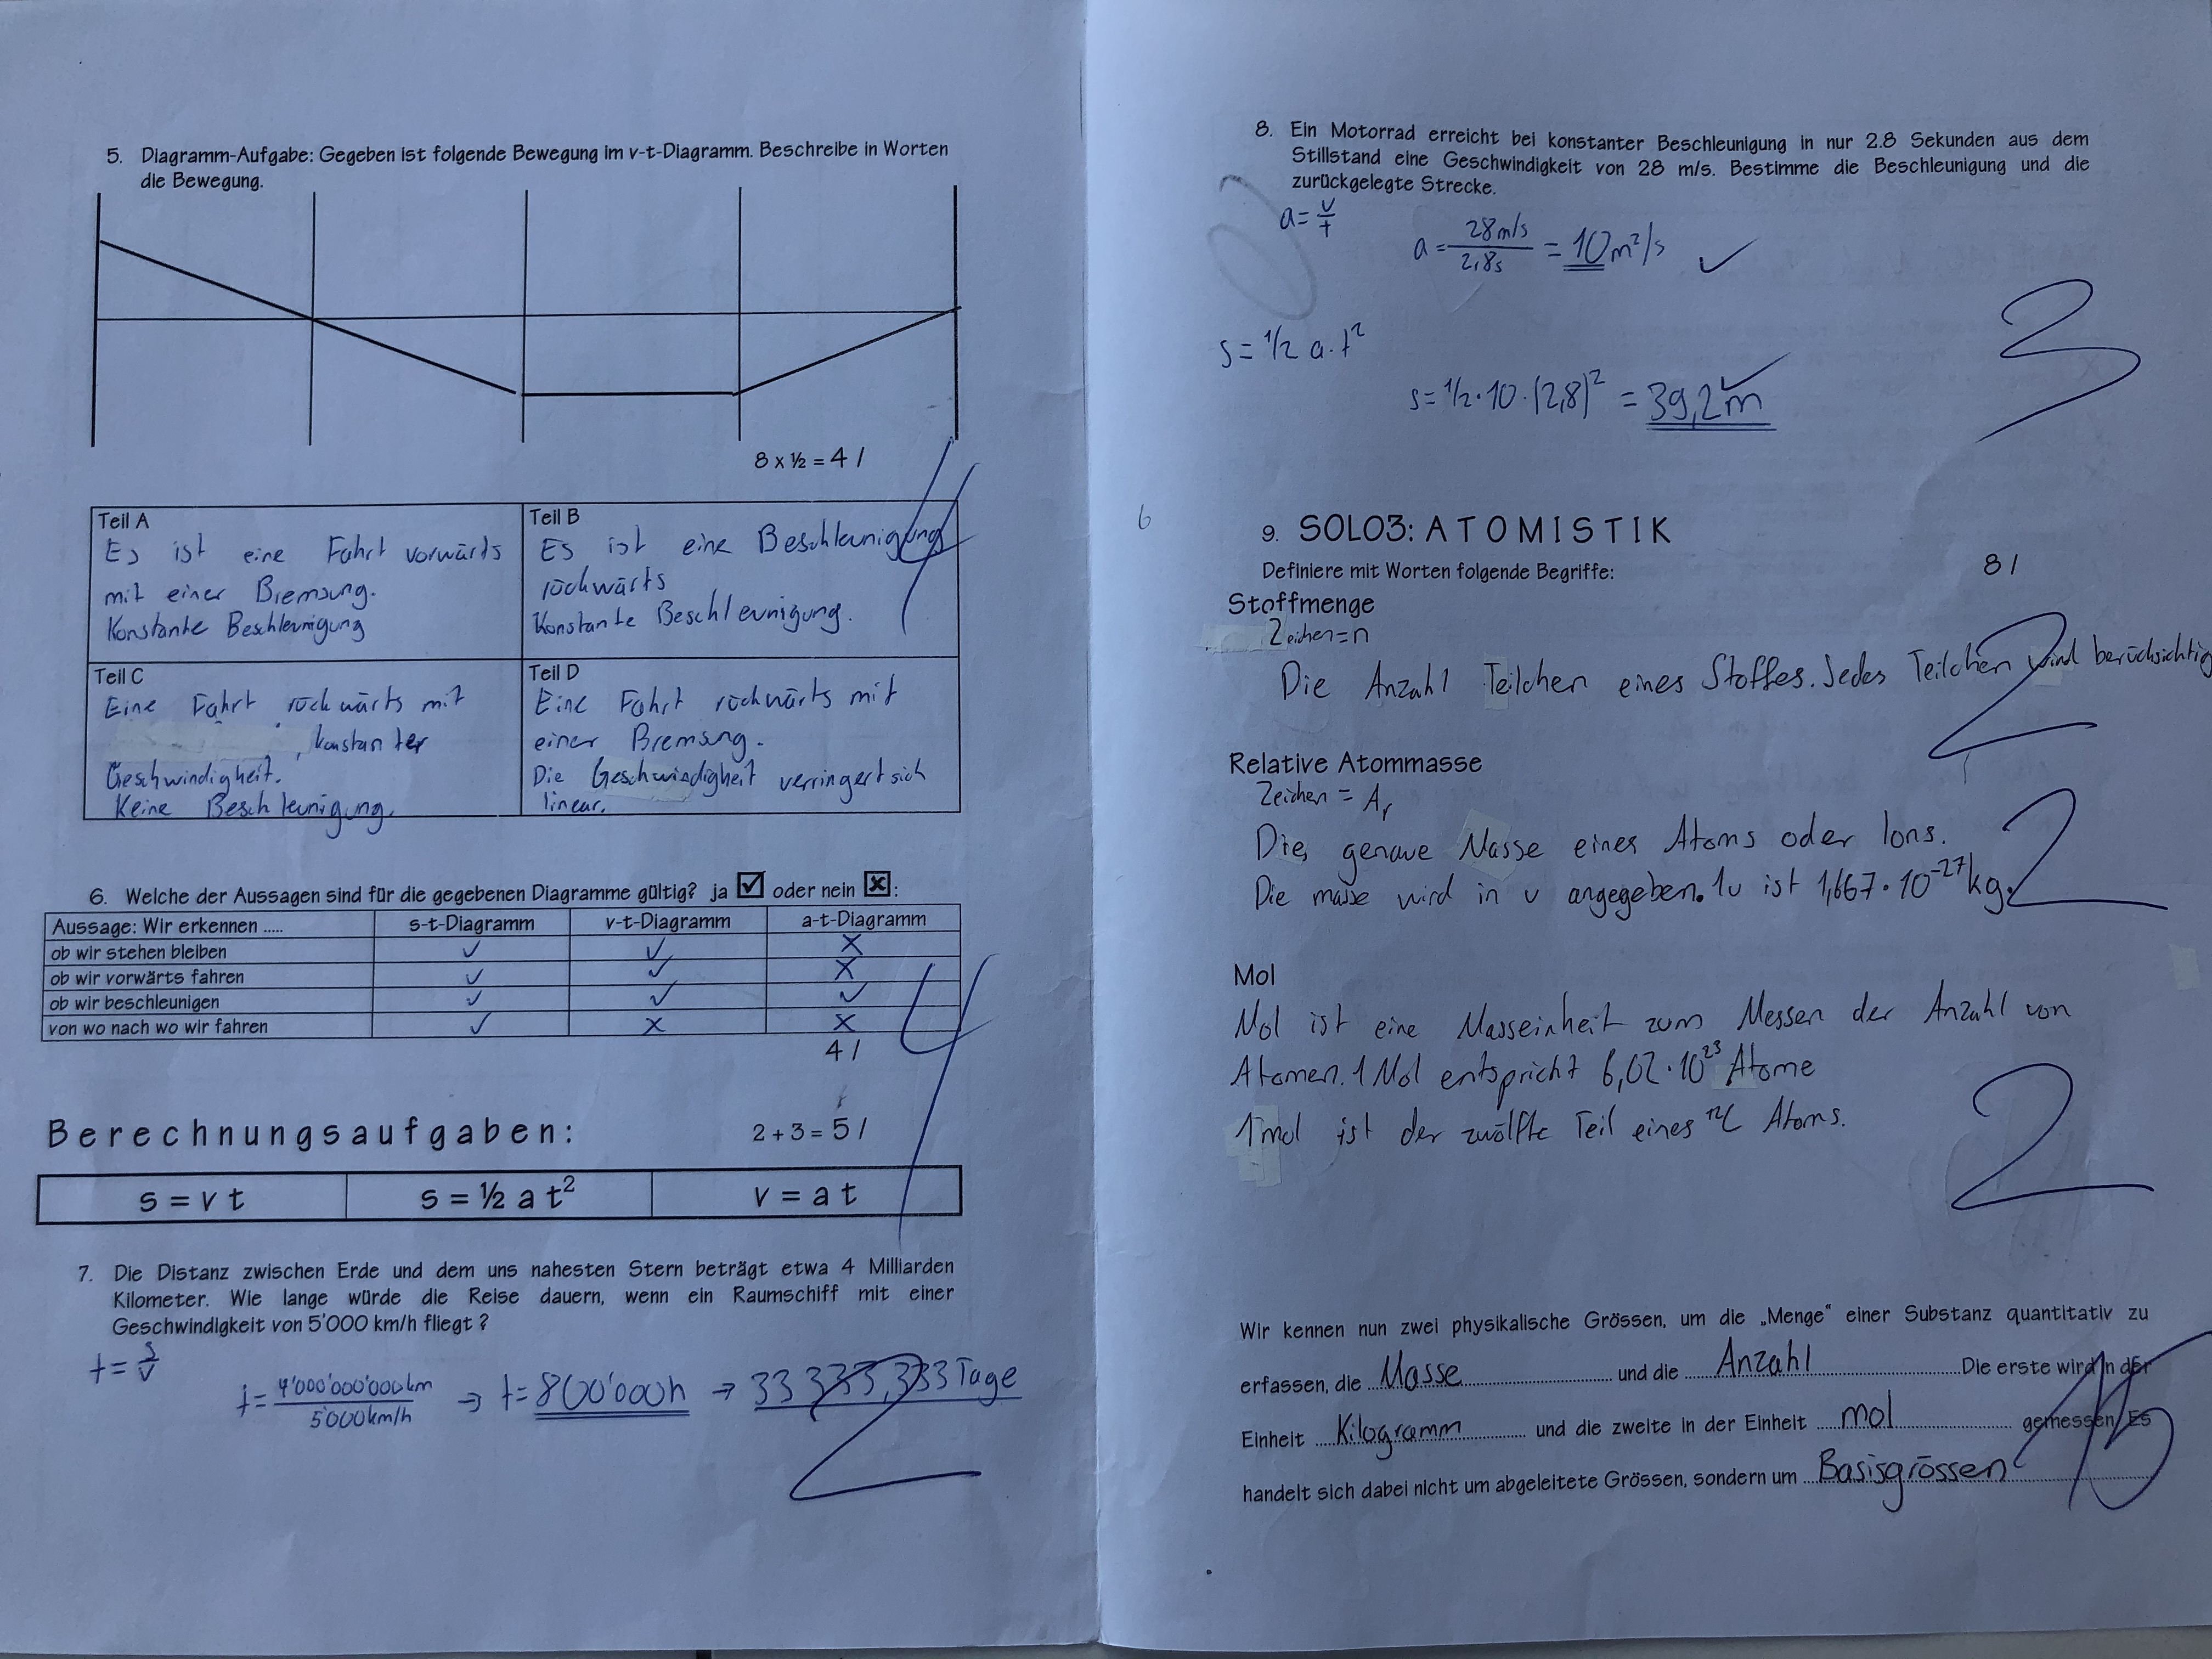 5. Diagramm-Aufgabe: Gegeben ist folgende Bewegung im v-t-Diagramm. Beschreibe in Worten
die Bewegung.
8 x ½ = 4 /
4
Teil A
Es ist eine Fahrt vorwärts
mit einer Bremsung.
Konstante Beschleunigung
Teil B
Es ist eine Beschleunigung
rückwärts
Konstante Beschleunigung.
Teil C
Eine Fahrt rückwärts mit
, konstanter
Geschwindigkeit.
Keine Beschleunigung.
Teil D
Eine Fahrt rückwärts mit
einer Bremsung.
Die Geschwindigkeit verringert sich
linear.
6. Welche der Aussagen sind für die gegebenen Diagramme gültig? ja ☑ oder nein ☒:
Aussage: Wir erkennen ..... s-t-Diagramm v-t-Diagramm a-t-Diagramm
ob wir stehen bleiben ✓ ✓ X
ob wir vorwärts fahren ✓ ✓ X
ob wir beschleunigen ✓ ✓ ✓
von wo nach wo wir fahren ✓ X X
4 /
4
Berechnungsaufgaben: 2 + 3 = 5 /
s = v t s = ½ a t² v = a t
7. Die Distanz zwischen Erde und dem uns nahesten Stern beträgt etwa 4 Milliarden
Kilometer. Wie lange würde die Reise dauern, wenn ein Raumschiff mit einer
Geschwindigkeit von 5'000 km/h fliegt ?
t = s/v
t = 4'000'000'000km / 5'000km/h → t = 800'000h → 33 333,333 Tage
2
8. Ein Motorrad erreicht bei konstanter Beschleunigung in nur 2.8 Sekunden aus dem
Stillstand eine Geschwindigkeit von 28 m/s. Bestimme die Beschleunigung und die
zurückgelegte Strecke.
a = v/t
a = 28m/s / 2,8s = 10 m²/s ✓
s = 1/2 a · t²
s = 1/2 · 10 · (2,8)² = 39,2m ✓
3
6
9. SOLO3: ATOMISTIK
8 /
Definiere mit Worten folgende Begriffe:
Stoffmenge
Zeichen = n
Die Anzahl Teilchen eines Stoffes. Jedes Teilchen wird berücksichtig
2
Relative Atommasse
Zeichen = Ar
Die genaue Masse eines Atoms oder Ions.
Die masse wird in u angegeben. 1u ist 1,667 · 10⁻²⁷ kg.
2
Mol
Mol ist eine Masseinheit zum Messen der Anzahl von
Atomen. 1 Mol entspricht 6,02 · 10²³ Atome
1 mol ist der zwölfte Teil eines ¹²C Atoms.
2
Wir kennen nun zwei physikalische Grössen, um die „Menge“ einer Substanz quantitativ zu
erfassen, die Masse und die Anzahl Die erste wird in der
Einheit Kilogramm und die zweite in der Einheit mol gemessen. Es
handelt sich dabei nicht um abgeleitete Grössen, sondern um Basisgrössen